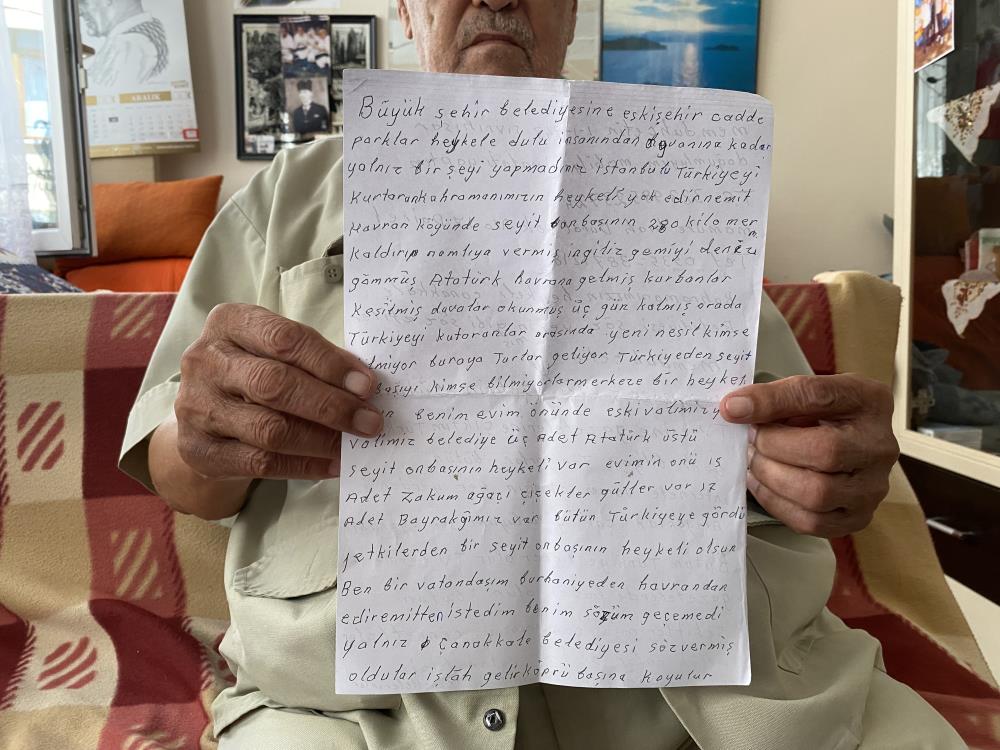 ARALIK
Büyük sehir belediyesine eşkişehir cadde
parklar heykele dulu insanından ayvanına kadar
yalnız bir şeyi yapmadınız istanbulu Türkiyeyi
Kurtarankahramanımızın heykeli yok edirnemit
Havran köyünde seyit onbaşının 280 kilo mer
Kaldırıp namluya vermiş ingiliz gemiyi denize
gömmüş Atatürk havrana gelmiş kurbanlar
Kesilmiş duvalar okunmuş üç gün kalmış orada
Türkiyeyi kutoranlar arasında yeni nesil kimse
ilmiyor buraya Turlar geliyor Türkiyeden seyit
başıyi kimse bilmiyorlar merkeze bir heykel
benim evim önünde eski valimizy
valimiz belediye üç Adet Atatürk üstü
seyit onbaşının heykeli var evimin önü 15
Adet Zakum ağaçı çiçekler güller var 12
Adet Bayrakğımız var bütün Türkiyeye gördü
yetkilerden bir seyit onbaşının heykeli olsun
Ben bir vatandaşım burhaniyeden havrandan
ediremitten istedim benim sözüm geçemedi
yalnız Çanakkale belediyesi sözvermiş
oldular işlâh gelir köprü başına Koyulur